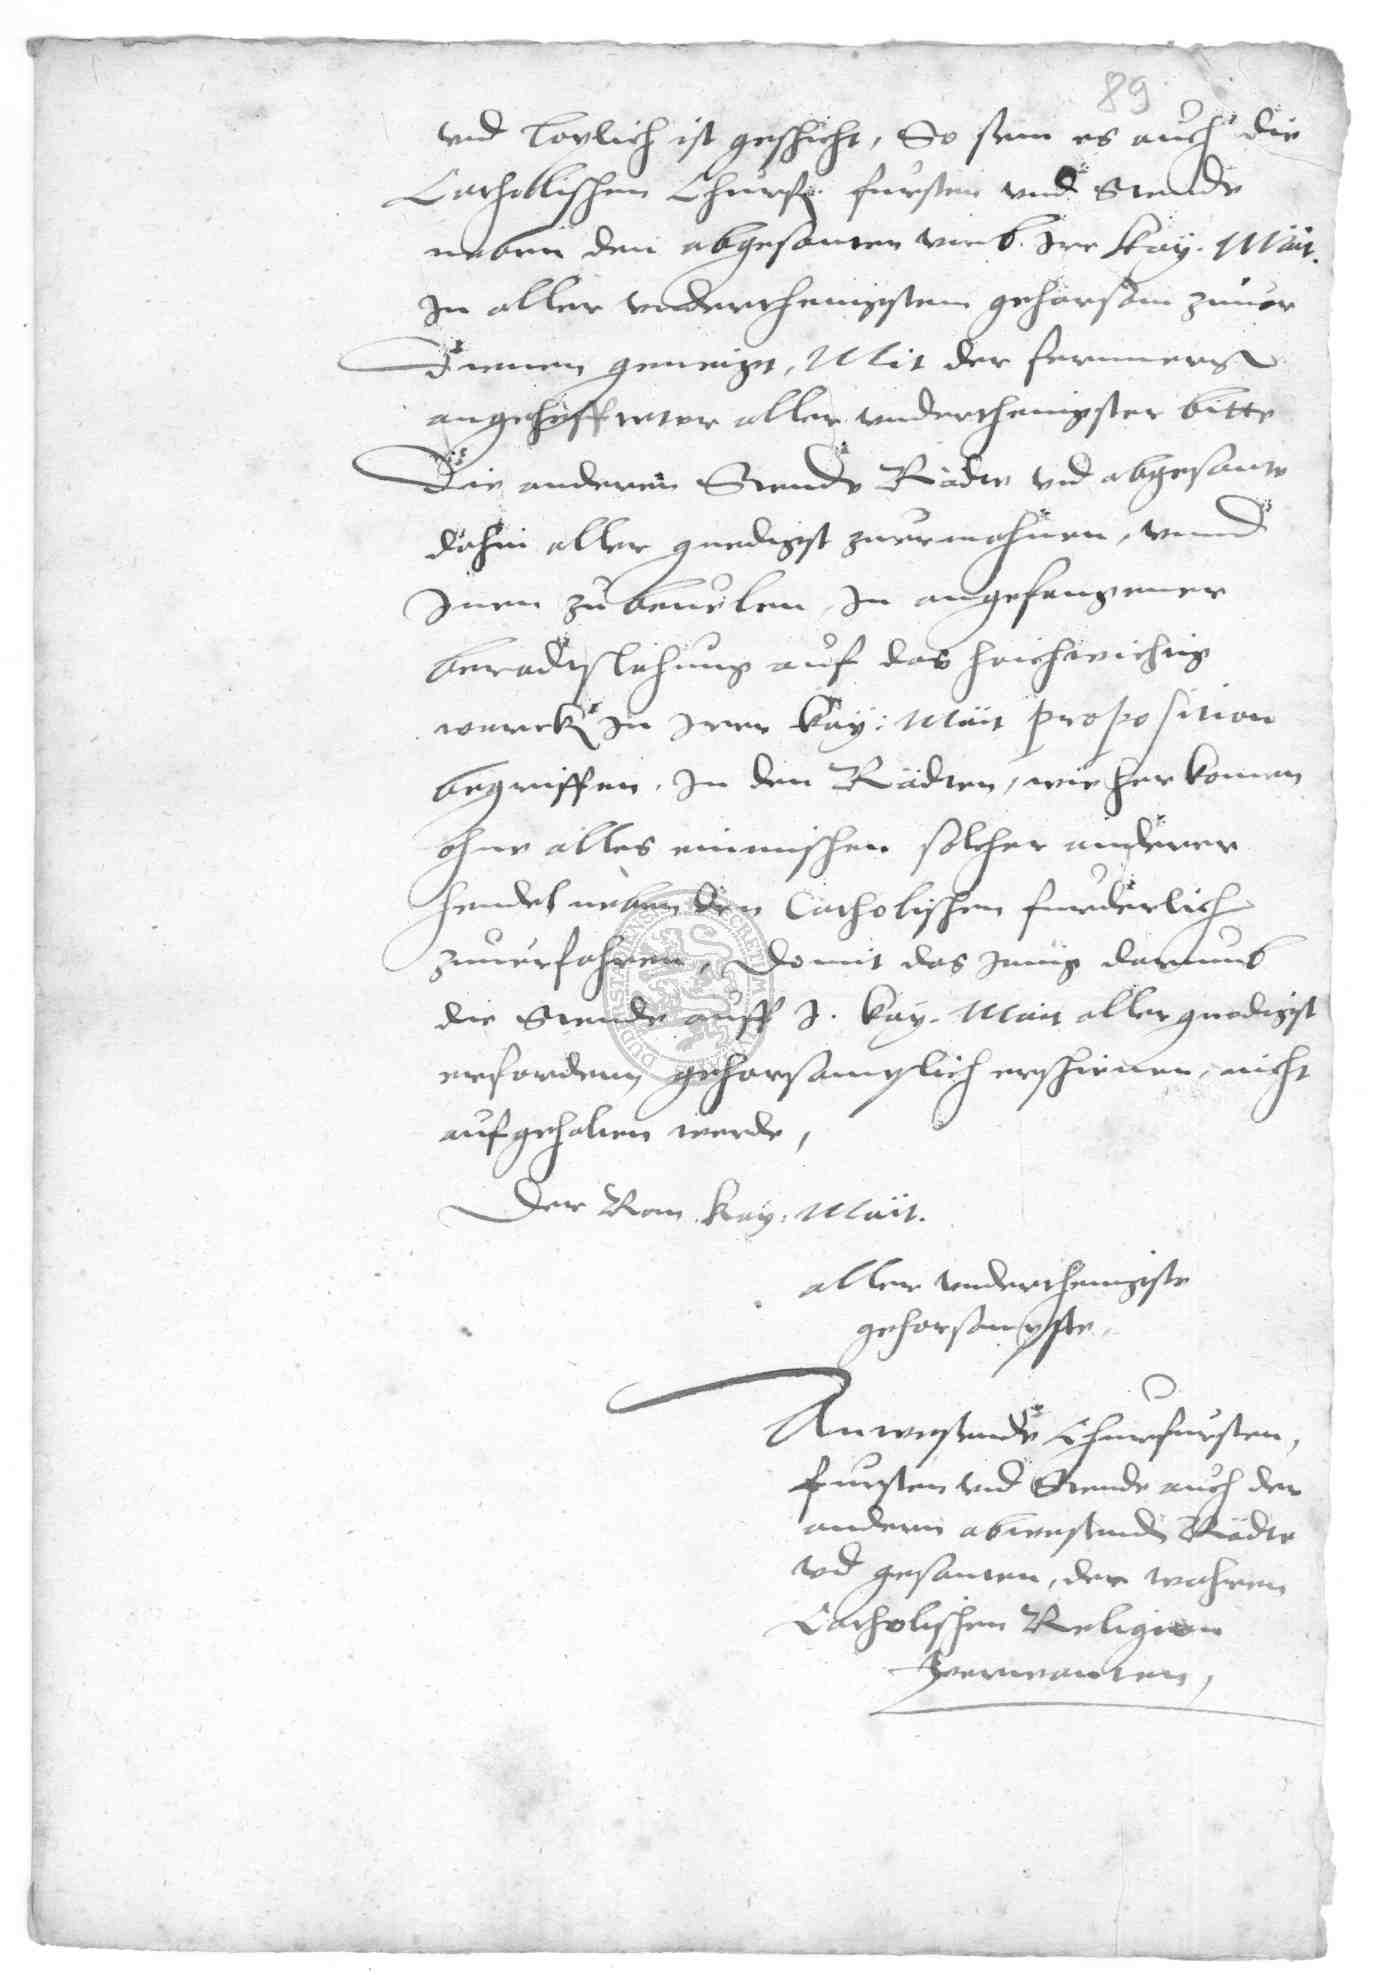 89
vnd loblich ist geschicht, So sein es auch die
Catholischen Churf. fursten vnd Stende
neben den abgesanten vmb Ire kay. Mait.
In aller vnderthenigstem gehorsam zuuer
dienen geneigt, Mit der fernneren
angeheffteter aller vnderthenigster bitte
Die anderen Stende Rädte vnd abgesante
dahin aller gnedigst zuermahnen, vnnd
Inen zu beuelen, In angefangener
beradtslahung auf das hochwichtig
werck In Irer kay: Mait proposition
begriffen, In den Rädten, wie herkomen
ohne alles einmischen solcher anderer
hendel neben den Catholischen furderlich
zuuerfahren, Domit das Jenig darumb
die Stende auff J. kay. Mait allergnedigst
erfordern gehorsamlich erschienen, nicht
aufgehalten werde,
Der Rom. kay: Mait.
aller vnderthenigste
gehorsamste,
Anwesende Churfursten,
fursten vnd Stende auch der
andern abwesende Rädte
vnd gesanten, der wahren
Catholischen Religion
verwanten,